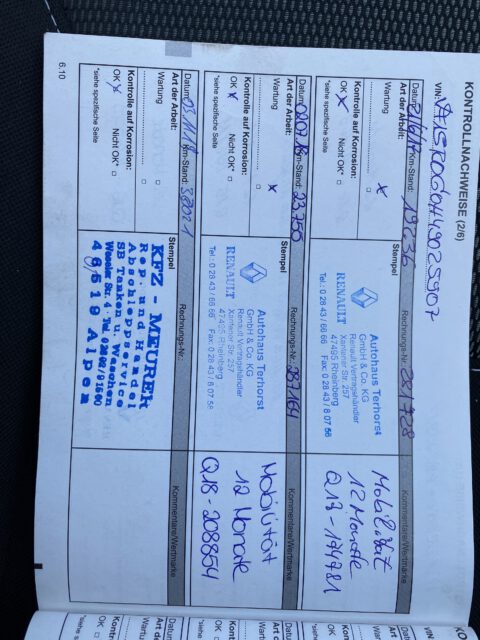 KONTROLLNACHWEISE (2/6)
VIN:
Datum: Km-Stand: 19236 Rechnungs-Nr.: 281728
Art der Arbeit: Stempel Kommentare/Wertmarke
Wartung x
Kontrolle auf Korrosion:
OK x Nicht OK* □
*siehe spezifische Seite
RENAULT
Autohaus Terhorst
GmbH & Co. KG
Renault Vertragshändler
Xantener Str. 257
47495 Rheinberg
Tel.: 0 28 43 / 86 66 Fax: 0 28 43 / 8 07 56
Mobilität
12 Monate
Datum: Km-Stand: 23755 Rechnungs-Nr.: 287164
Art der Arbeit: Stempel Kommentare/Wertmarke
Wartung x
Kontrolle auf Korrosion:
OK x Nicht OK* □
*siehe spezifische Seite
RENAULT
Autohaus Terhorst
GmbH & Co. KG
Renault Vertragshändler
Xantener Str. 257
47495 Rheinberg
Tel.: 0 28 43 / 86 66 Fax: 0 28 43 / 8 07 56
Mobilität
12 Monate
Q18-208854
Datum: Km-Stand: Rechnungs-Nr.:
Art der Arbeit: Stempel Kommentare/Wertmarke
Wartung □
Kontrolle auf Korrosion:
OK x Nicht OK* □
*siehe spezifische Seite
KFZ - MEURER
Rep. und Handel
Abschleppservice
SB Tanken u. Waschen
Weseler Str. 4
46519 Alpen
6.10